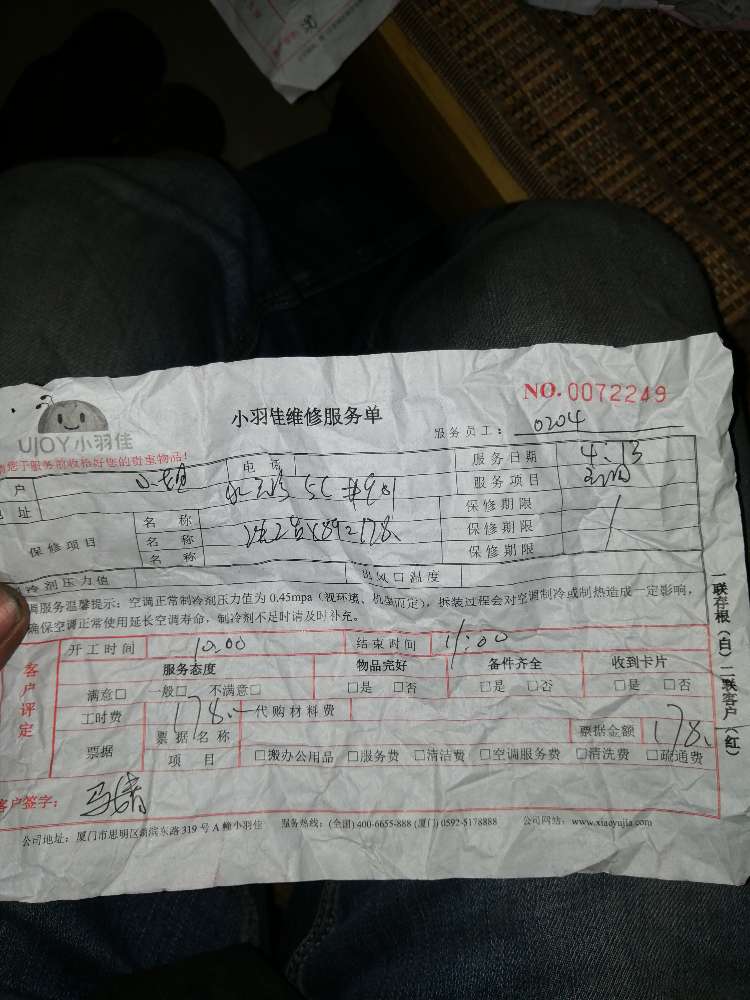 NO. 0072249
UJOY小羽佳
小羽佳维修服务单
服务员工: 0204
您于服务前收格好您的贵重物品!
户
电话
服务日期 4.13
址
5C #901
服务项目
保修项目
名称
洗2台×89=178
保修期限
名称
保修期限
名称
保修期限
冷剂压力值
出风口温度
调服务温馨提示: 空调正常制冷剂压力值为 0.45mpa (视环境、机型而定), 拆装过程会对空调制冷或制热造成一定影响,
确保空调正常使用延长空调寿命, 制冷剂不足时请及时补充。
客户评定
开工时间 10.00
结束时间 11:00
服务态度
物品完好
备件齐全
收到卡片
满意□ 一般□ 不满意□
□是 □否
□是 □否
□是 □否
工时费 178.
代购材料费
票据
票据名称
票据金额 178.
项目
□搬办公用品 □服务费 □清洁费 □空调服务费 □清洗费 □疏通费
客户签字:
公司地址: 厦门市思明区湖滨东路 319 号 A 幢小羽佳 服务热线: (全国) 400-6655-888 (厦门) 0592-5178888 公司网站: www.xiaoyujia.com
一联存根(白) 二联客户(红)